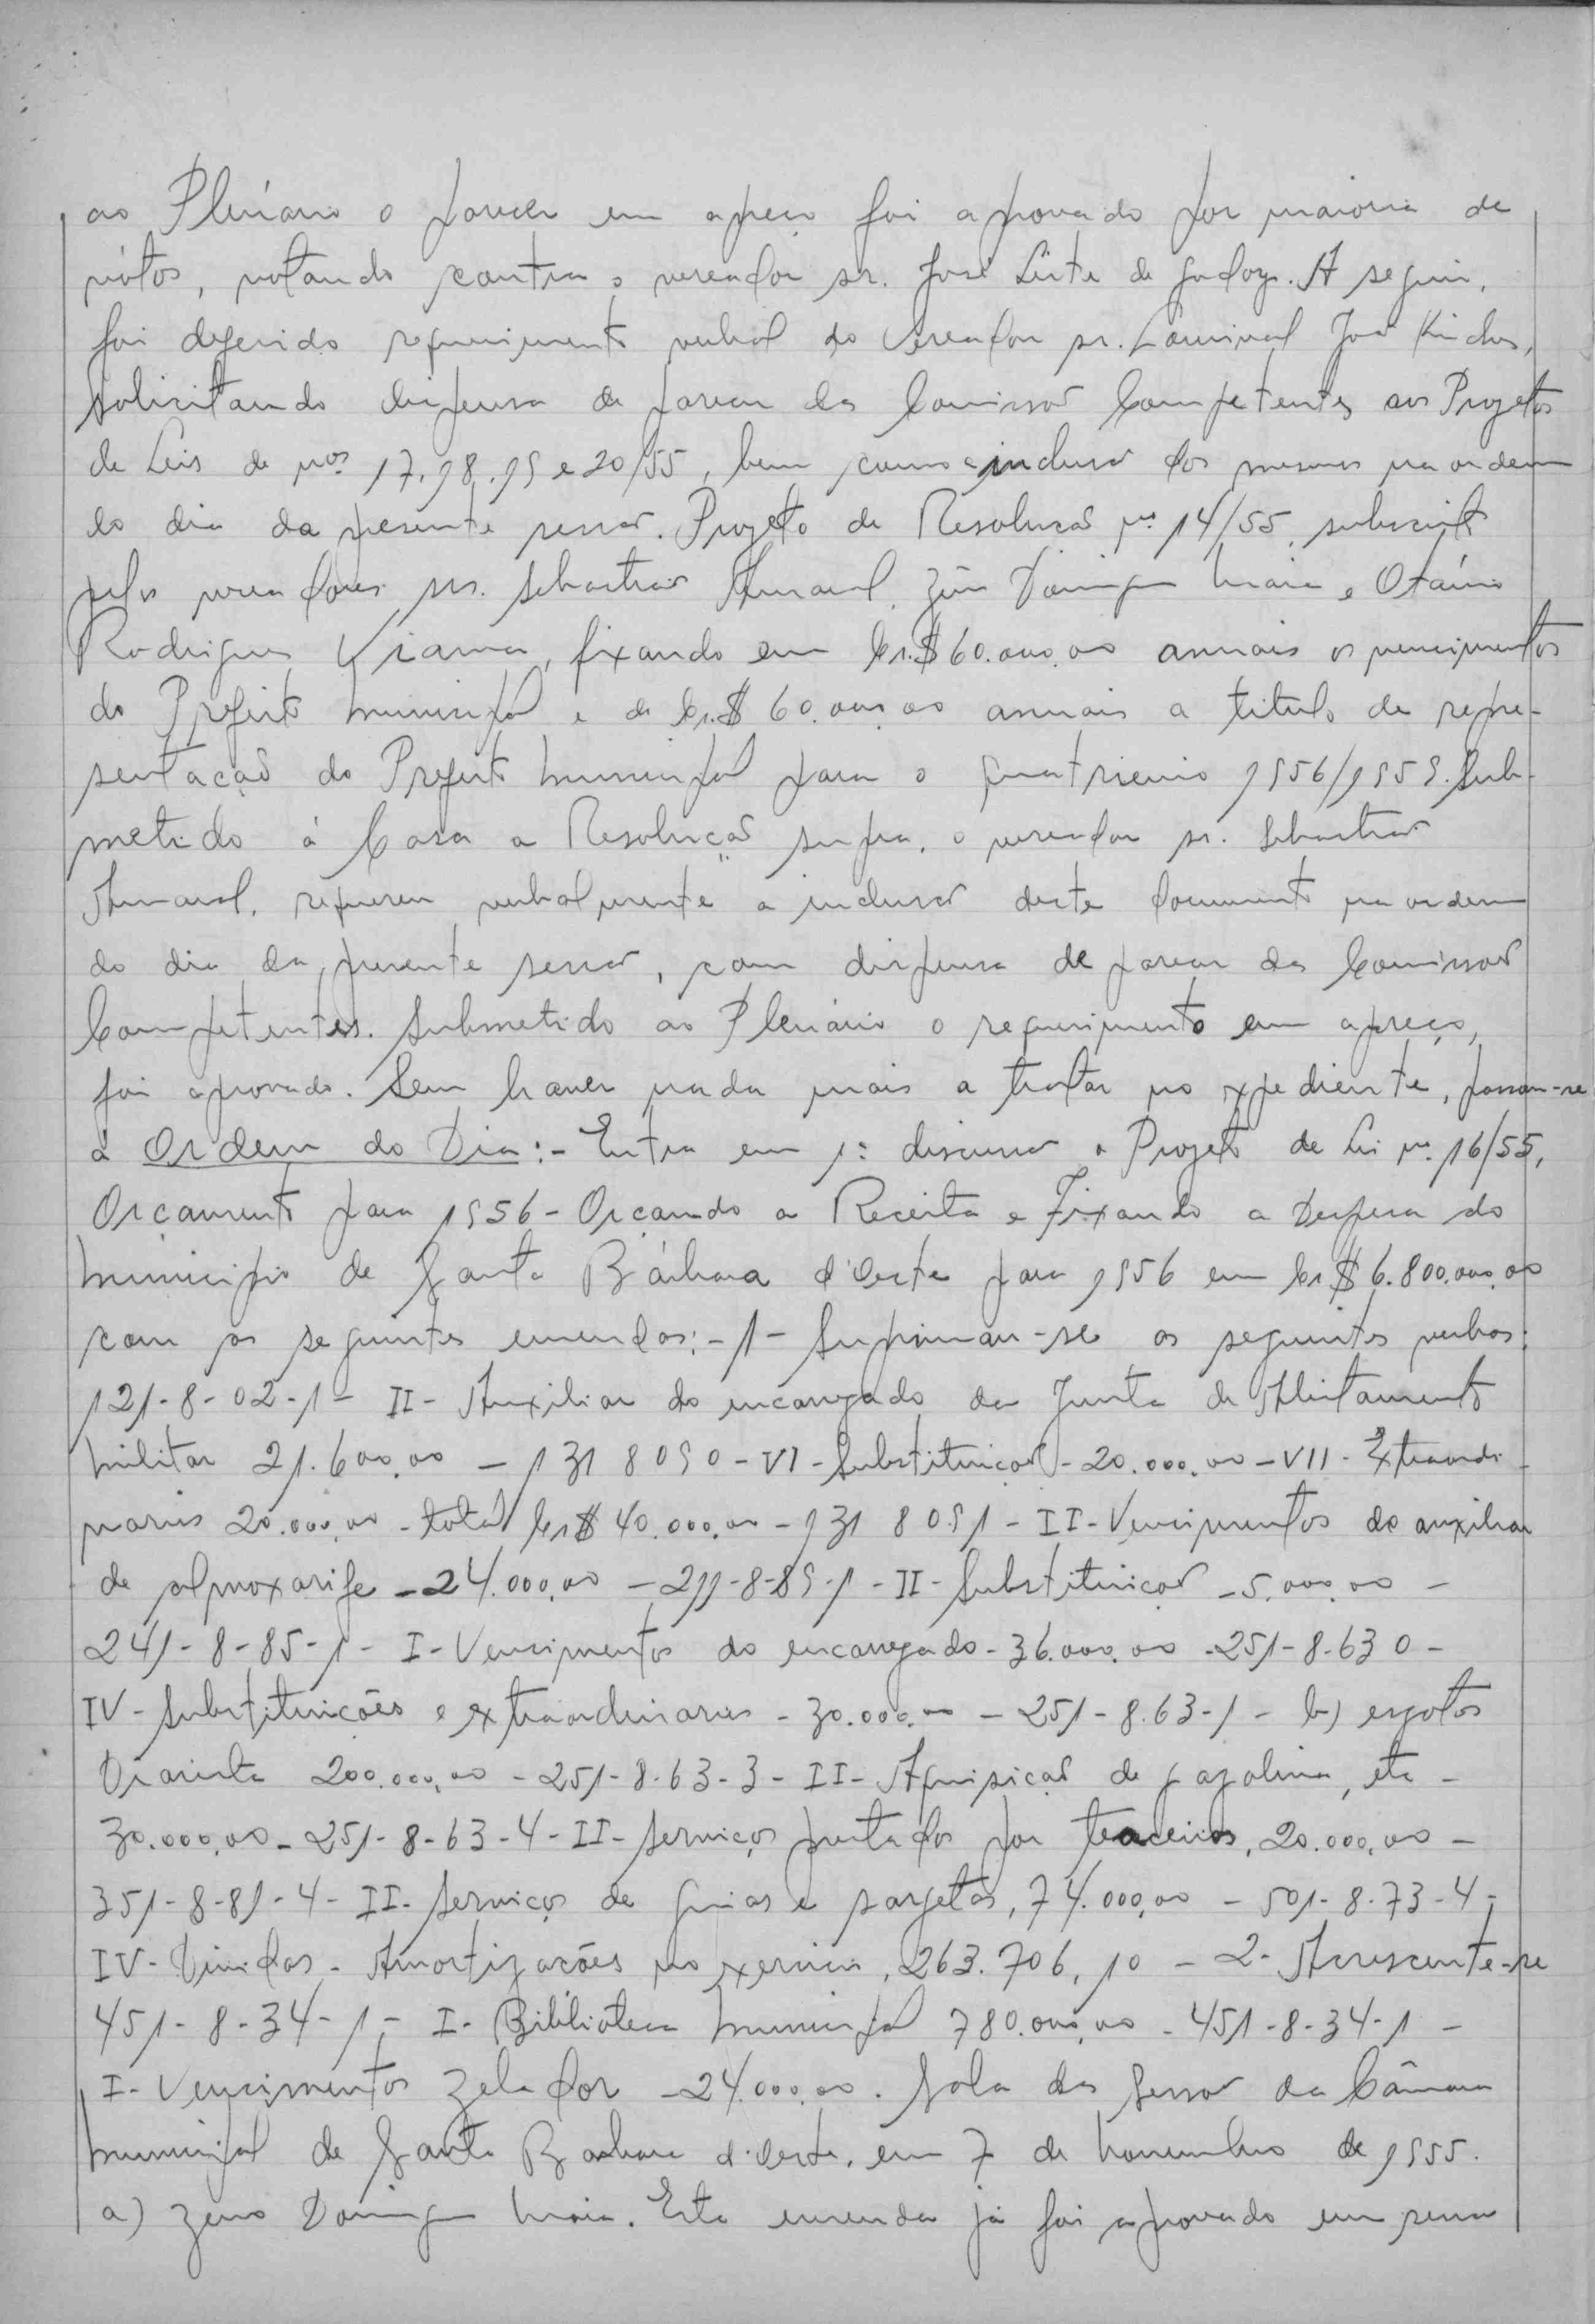 ao Plenário o parecer em apreço foi aprovado por maioria de
vótos, votando contra o vereador sr. José Leite de Godoy. A seguir,
foi deferido requerimento verbal do Vereador sr. Lourival José
solicitando dispensa de parecer das Comissões Competentes aos Projetos
de Leis de nos. 17.18.19 e 20/55, bem como a inclusão dos mesmos na ordem
do dia da presente sessão. Projeto de Resolução nº 14/55, subscrito
pelos vereadores srs. Sebastião Amaral, Domingos Maia e Otávio
Rodrigues Viana, fixando em Cr.$ 60.000,00 annais os vencimentos
do Prefeito Municipal e de Cr.$ 60.000,00 annais a titulo de repre-
sentação do Prefeito Municipal para o quatrienio 1956/1959. Sub-
metido á Casa a Resolução supra, o vereador sr. Sebastião
Amaral, requereu verbalmente a inclusão deste documento na ordem
do dia da presente sessão, com dispensa de parecer das Comissões
Competentes. Submetido ao Plenário o requerimento em apreço,
foi aprovado. Sem haver nada mais a tratar no expediente, passou-se
á Ordem do Dia:- Entra em 1ª discussão o Projeto de Lei nº 16/55,
Orçamento para 1956 - Orçando a Receita e Fixando a Despesa do
Municipio de Santa Bárbara d'Oeste para 1956 em Cr$ 6.800.000,00
com as seguintes emendas:- 1- Suprimam-se as seguintes verbas:
121-8-02-1- II- Auxiliar do encarregado da Junta de Alistamento
Militar 21.600,00 - 131 8090-VI-Substituição-20.000,00-VII-Extraordi-
narios 20.000,00 - total Cr$ 40.000,00 - 131 809/1 - II-Vencimentos do auxiliar
de almoxarife -24.000,00 - 211-8-89-1 - II-Substituição -5.000,00 -
241-8-85-1- I-Vencimentos do encarregado-36.000,00 -251-8-630-
IV-Substituições e extraordinarios -30.000,00 - 251-8.63-1- b) esgotos
Diarista 200.000,00 -251-8-63-3- II- Aquisição de gazolina, etc -
30.000,00 -251-8-63-4-II-Serviços prestados por terceiros, 20.000,00 -
351-8-81-4- II- Serviços de guias e sarjetas, 74.000,00 - 501-8-73-4-
IV- Dividas - Amortizações no exercicio, 263.706,10 - 2- Acrescente-se
451-8-34-1- I- Biblioteca Municipal 780.000,00 -451-8-34-1-
I- Vencimentos Zelador -24.000,00. Sala das Sessões da Câmara
Municipal de Santa Barbara d'Oeste, em 7 de Novembro de 1955.
a) Zeno Domingos Maia. Esta emenda já foi aprovado em